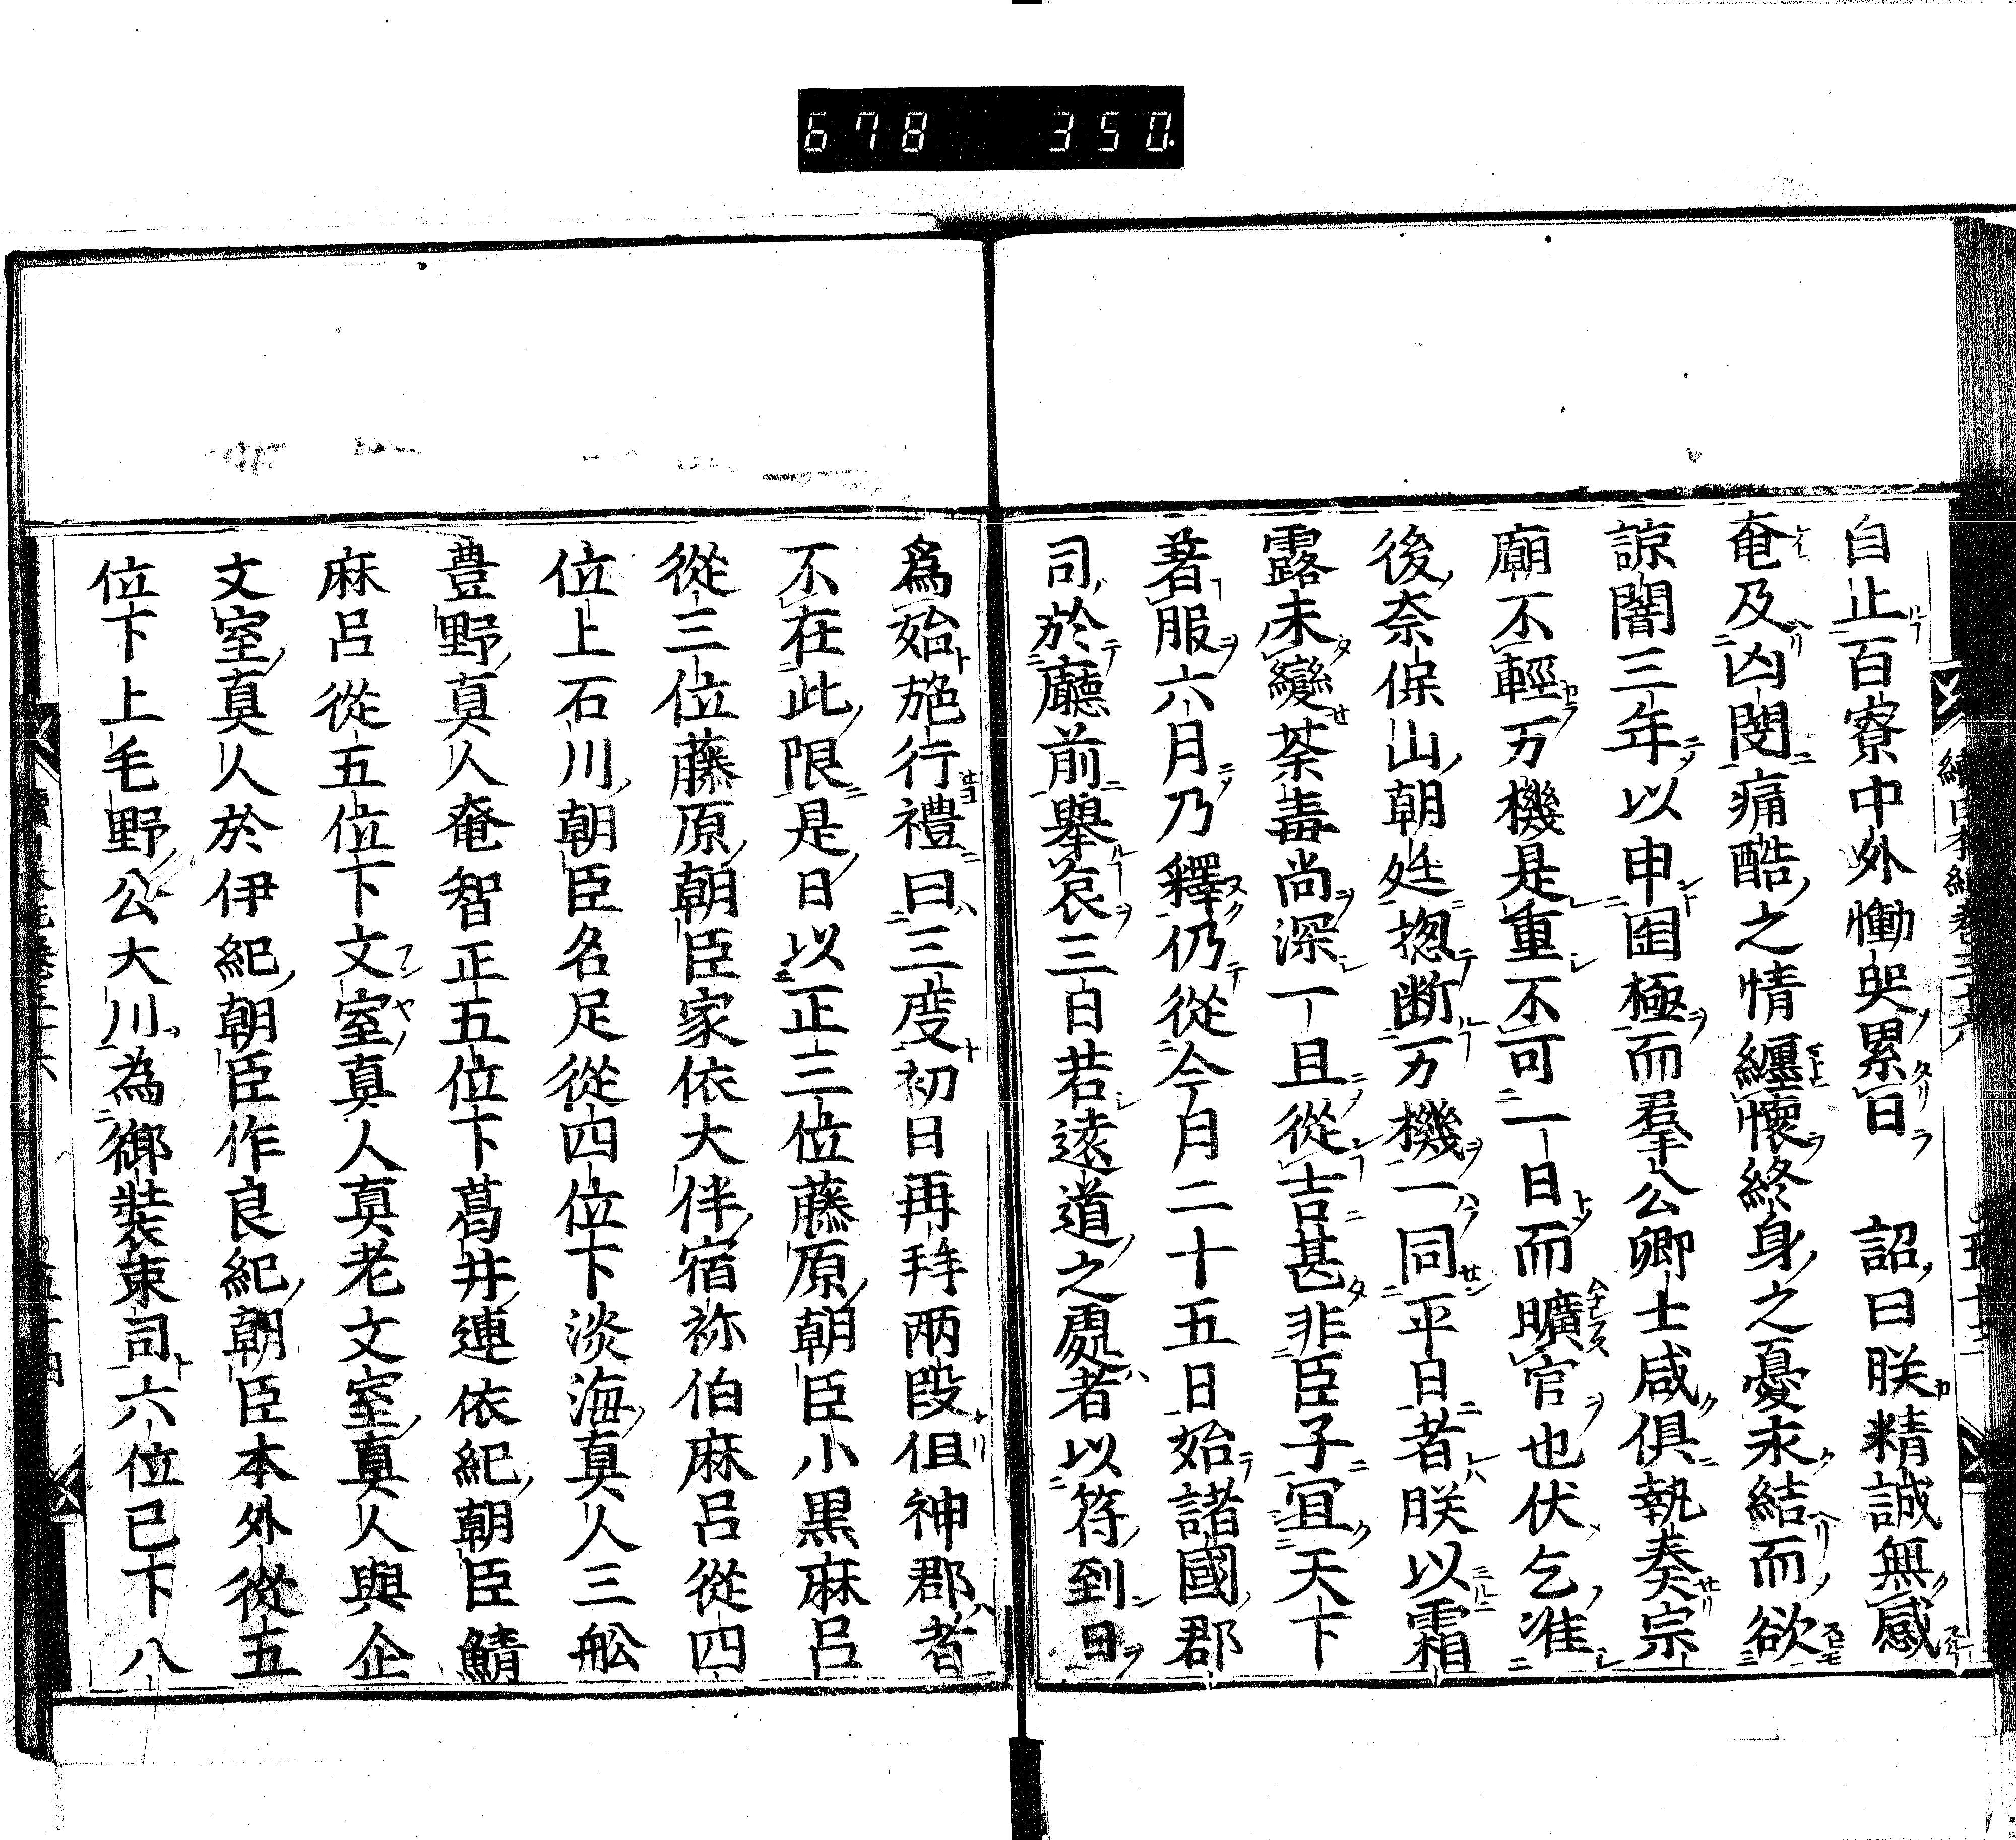 678 350.
自止百寮中外慟哭累日 詔曰朕精誠無感
奄及凶閔痛酷之情纏懷終身之憂永結而欲
諒闇三年以申罔極而羣公卿士咸俱執奏宗
廟不輕万機是重不可一日而曠官也伏乞准
後奈保山朝廷揔断万機一同平日者朕以霜
露未變荼毒尚深一旦從吉甚非臣子宜天下
著服六月乃釋仍從今月二十五日始諸國郡
司於廳前舉哀三日若遠道之處者以符到日
爲始施行禮曰三度初日再拜兩段但神郡者
不在此限是日以正三位藤原朝臣小黒麻呂
從三位藤原朝臣家依大伴宿祢伯麻呂從四
位上石川朝臣名足從四位下淡海真人三舩
豊野真人奄智正五位下葛井連依紀朝臣鯖
麻呂從五位下文室真人真老文室真人與企
文室真人於伊紀朝臣作良紀朝臣本外從五
位下上毛野公大川為御裝束司六位已下八